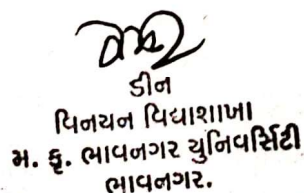 ડીન
વિનયન વિદ્યાશાખા
મ. કૃ. ભાવનગર યુનિવર્સિટી
ભાવનગર.